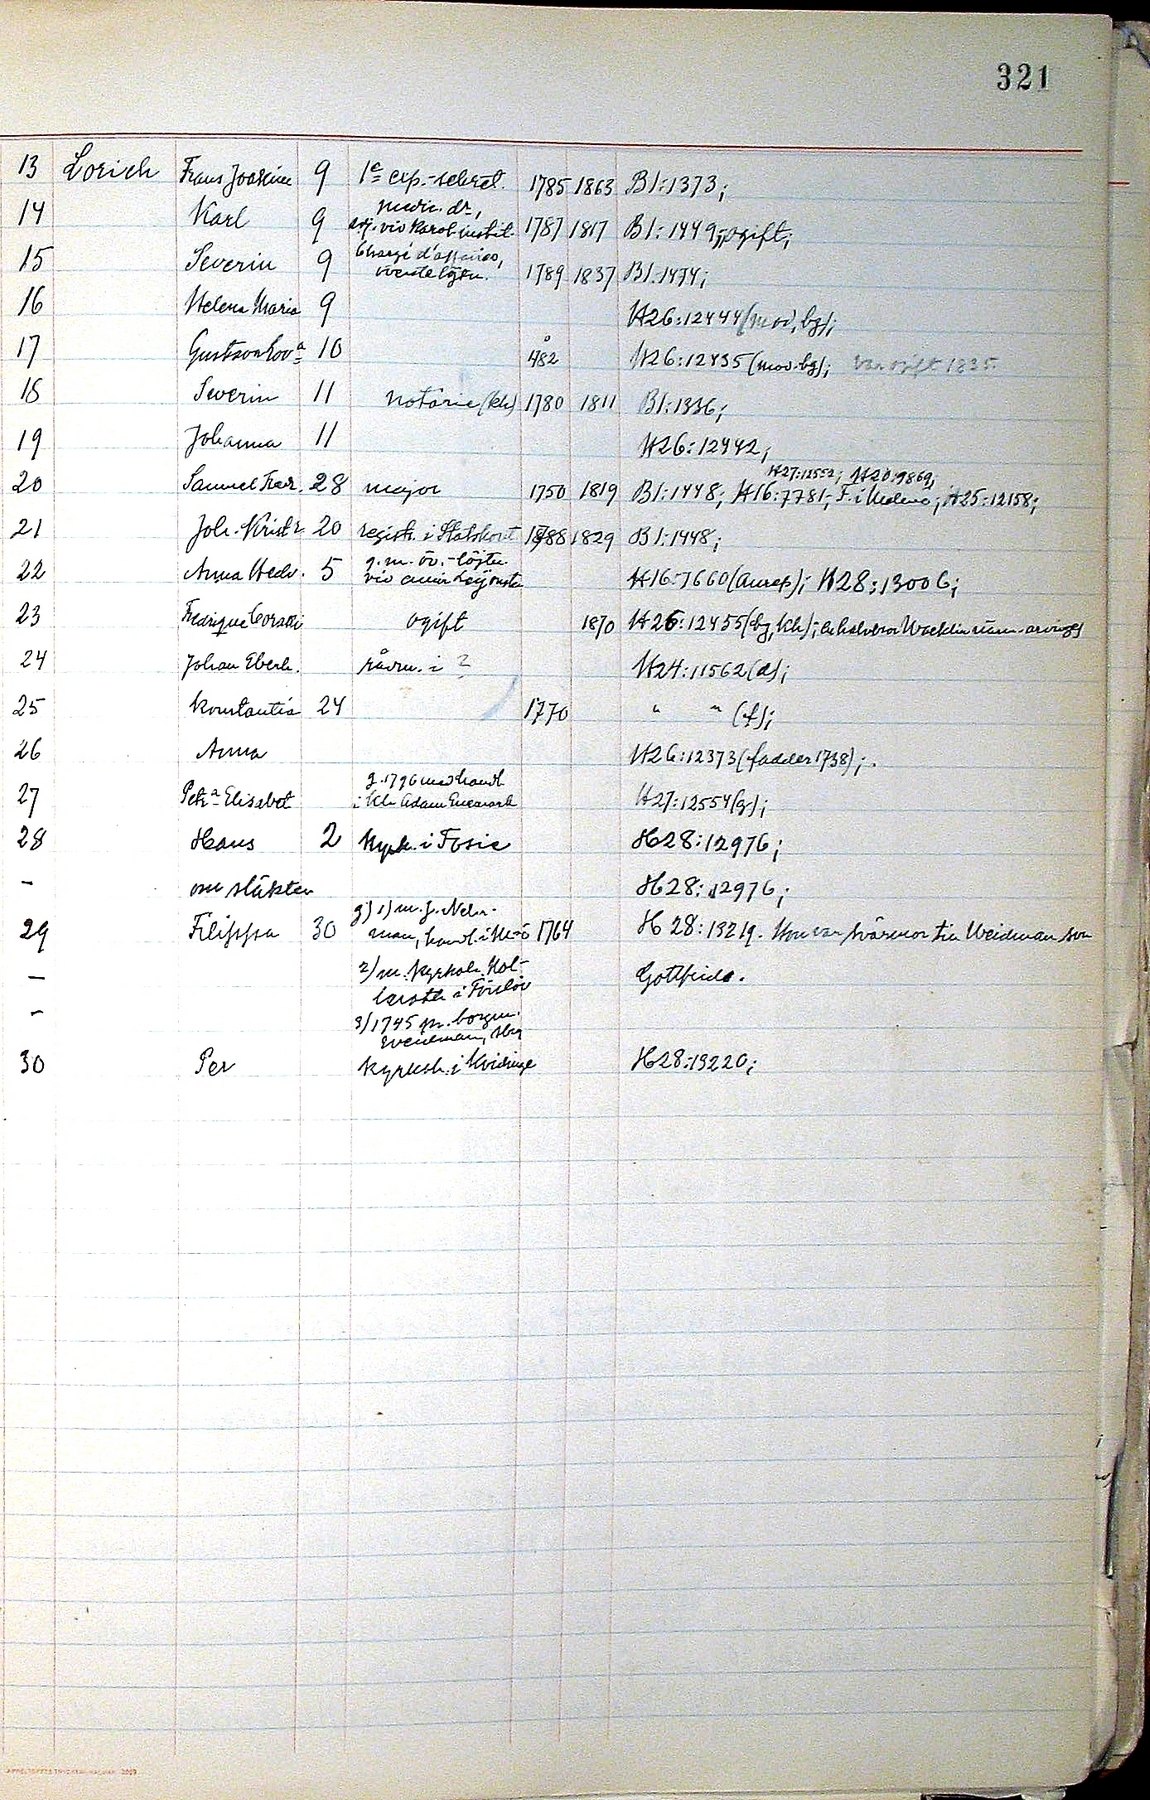 321
13 Lorich Frans Joakim 9 1e exp.-sekret. 1785 1863 Bl:1373;
medic. dr,
14 Karl 9 adj. vid Karol. instit. 1787 1817 Bl:1449; ogift;
Chargé d'affaires,
15 Severin 9 överstelöjtn. 1789 1837 Bl:1474;
16 Helena Maria 9 H26:12444 (mod, bg);
17 Gustava Lov.a 10 H26:12435 (mod. bg); var ogift 1835.
18 Severin 11 notarie (kh) 1780 1811 Bl:1336;
19 Johanna 11 H26:12442;
H27:12552; H20:9869;
20 Samuel Fredr. 28 major 1750 1819 Bl:1448; H16:7781; F. i Medevi; H25:12158;
21 Joh. Kristr. 20 registr. i Statskont. 1788 1829 Bl:1448;
g. m. öv.-löjtn.
22 Anna Hedv. 5 vid amir. H16:7660 (Anrep); H28:13006;
23 Fredrique ogift 1870 H26:12455 (bg, kh);
24 Johan Eberh. rådm. i ? H24:11562 (d);
25 Konstantia 24 1770 " " (f);
26 Anna H26:12373 (fadder 1738);.
g. 1796 med handl.
27 Petr.a Elisabet i Kh Adam H27:12554 (g);
28 Hans 2 Kyrk. i Fosie H28:12976;
– om släkten H28:12976;
g) 1) m. J. Nehr-
29 Filippa 30 man, handl. i M-ö 1764 H 28:13219. Hon var svärmor till Weidman son
– 2) m. Kyrkoh. Hol- Gottfrids.
i Förslöv
– 3) 1745 m. borgm.
Weidman, Hbg
30 Per Kyrkoh. i Kvidinge H28:13220;